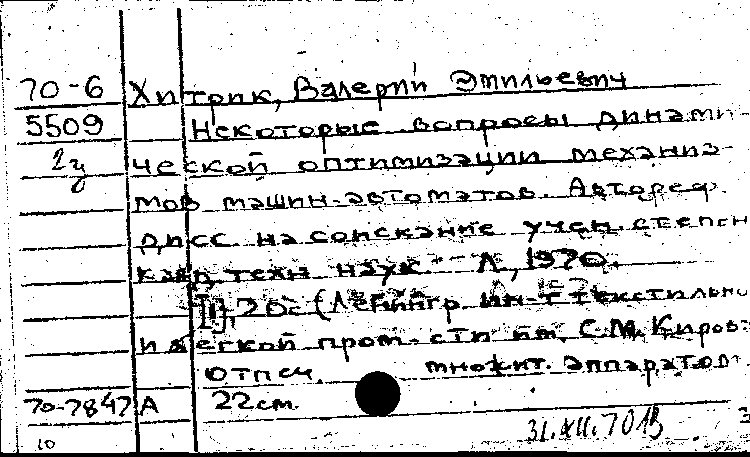 70-6 Хитрик, Валерий Эмильевич
5509 Некоторые вопросы динами-
2ц ческой оптимизации механиз-
мов машин-автоматов. Автореф.
дисс. на соискание учен. степени
канд. техн. наук. Л., 1970.
[1], 20с (Ленингр. ин-т текстильно
и легкой пром-сти им. С.М. Киров
Отпеч. множит. аппаратом.
70-7847 А 22см.
31.XII.70
10